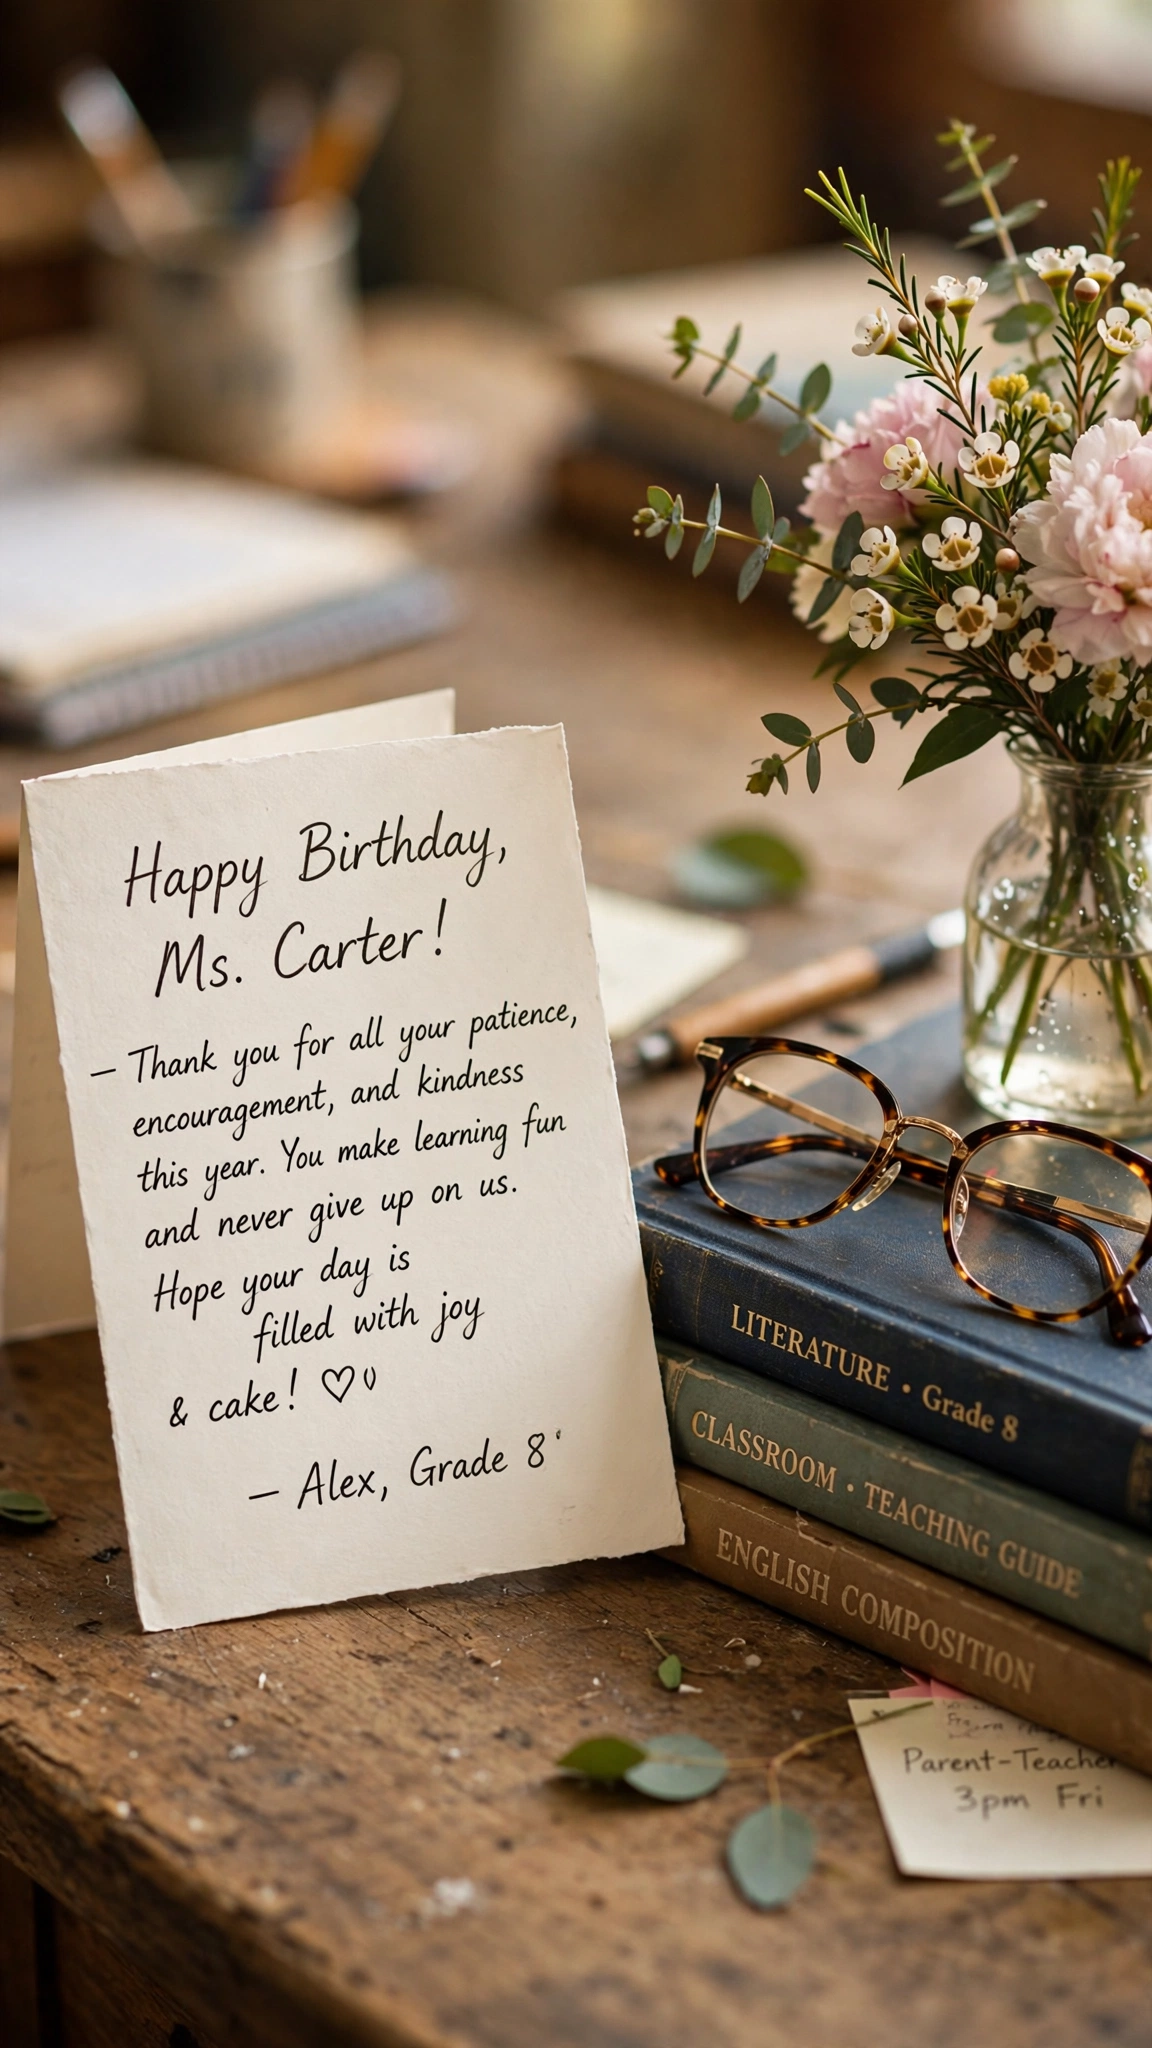 Happy Birthday,
Ms. Carter!
— Thank you for all your patience,
encouragement, and kindness
this year. You make learning fun
and never give up on us.
Hope your day is
filled with joy
& cake! ♡
— Alex, Grade 8
LITERATURE • Grade 8
CLASSROOM • TEACHING GUIDE
ENGLISH COMPOSITION
Parent-Teacher
3pm Fri